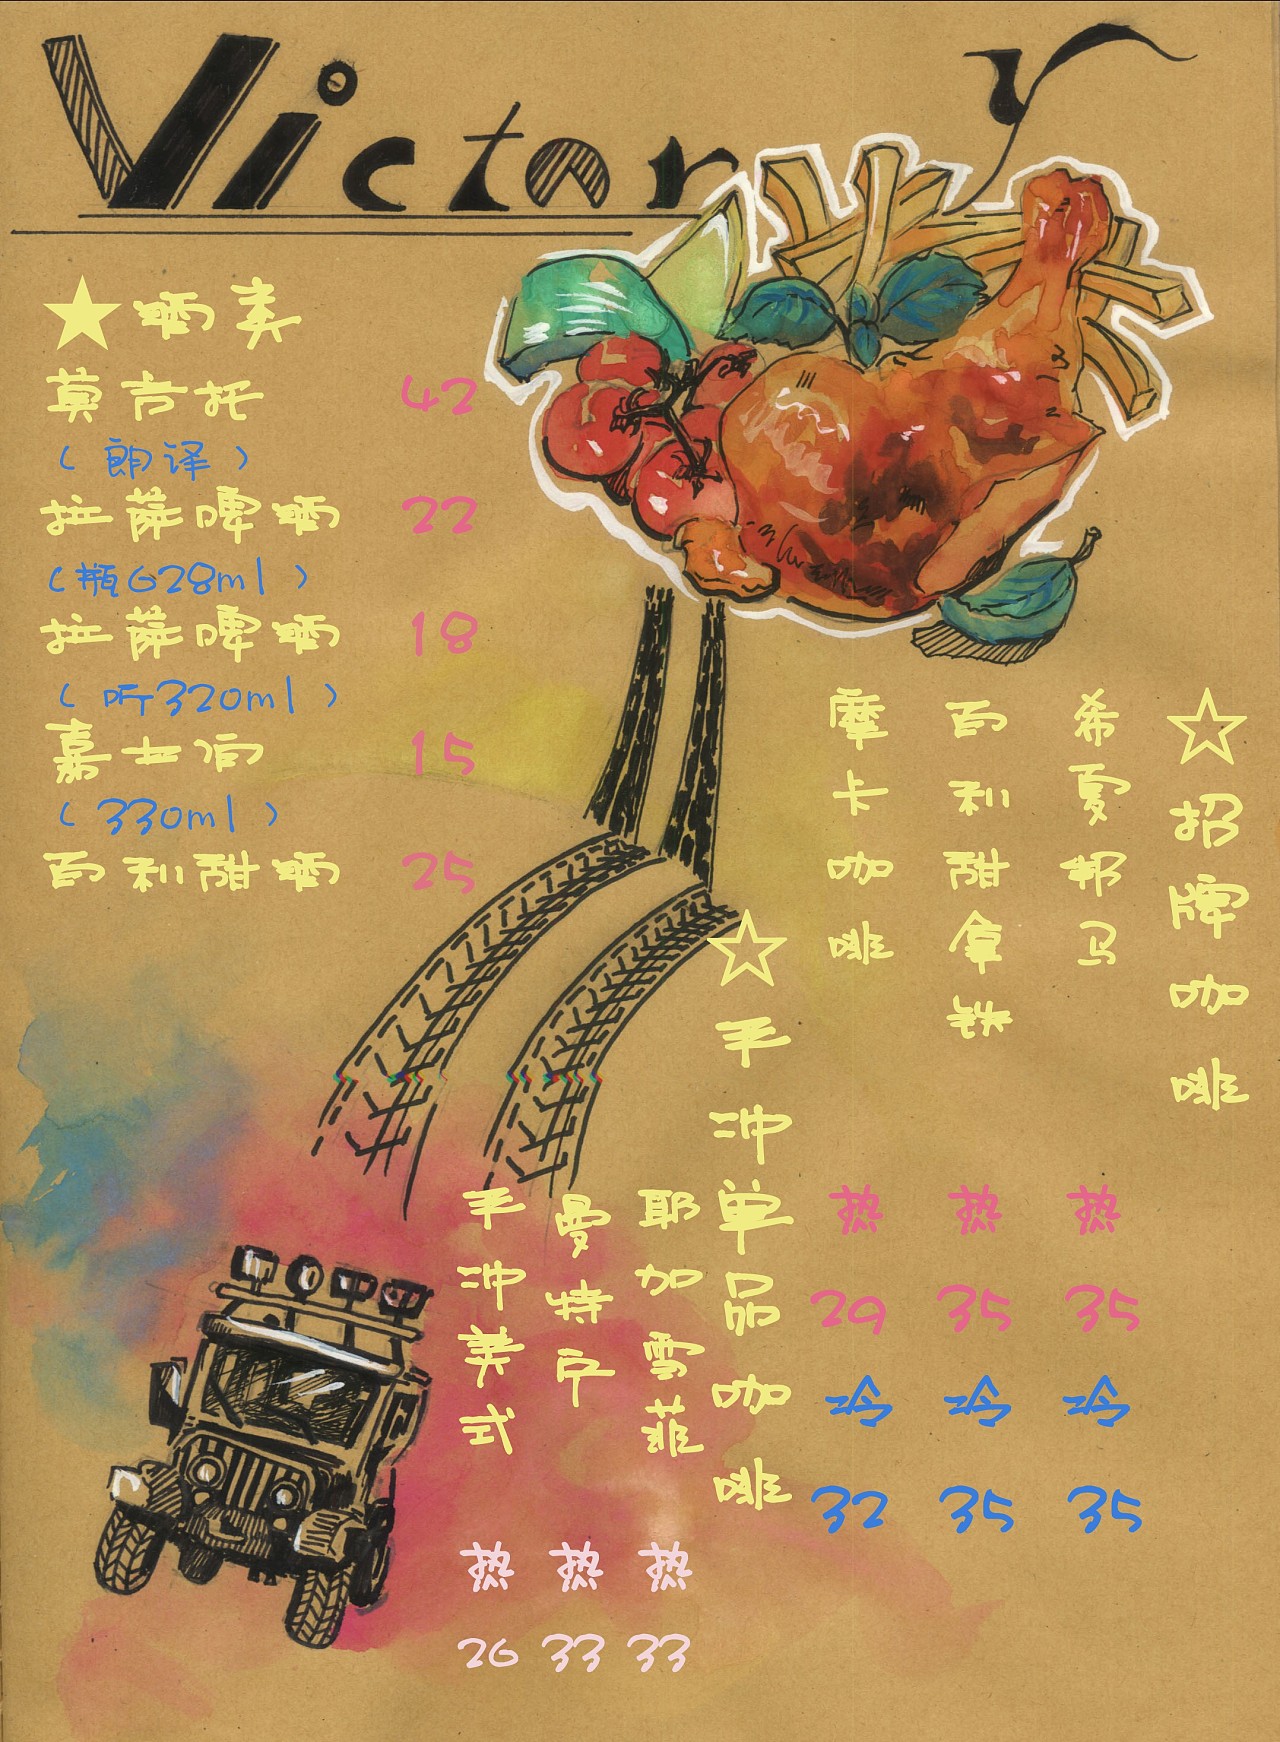 Victory
★晒素
莫吉托 42
（朗译）
拉萨啤晒 22
（瓶628ml）
拉萨啤晒 18
（听320ml）
嘉士伯 15
（330ml）
百利甜晒 25
☆招牌咖啡
希夏邦马 热 35 冷 35
百利甜拿铁 热 35 冷 35
摩卡咖啡 热 29 冷 32
☆手冲单品咖啡
耶加雪菲 热 33
曼特宁 热 33
手冲美式 热 26